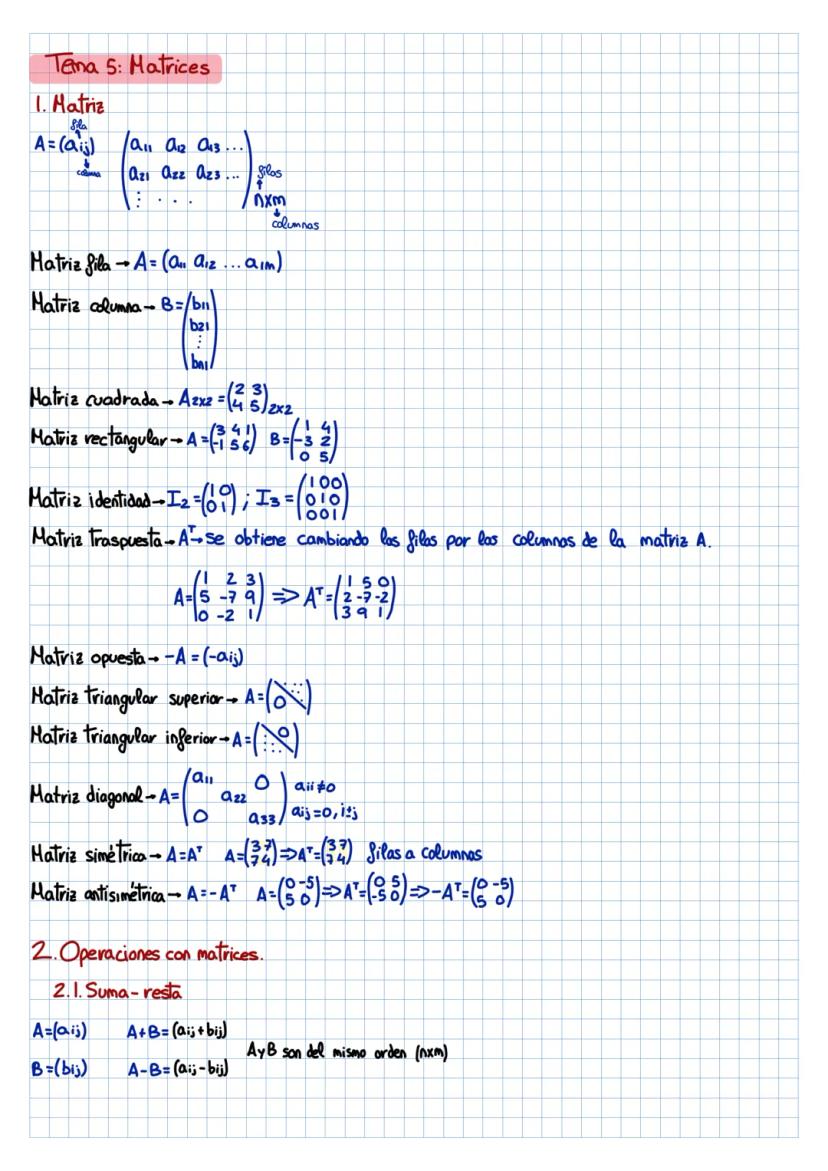 Tema 5: Matrices
1. Matriz
fila
A=(aij)
columna
(a11 a12 a13 ...
a21 a22 a23 ...
⋮ . . .)
filas
nxm
columnas
Matriz fila → A=(a11 a12 ... a1m)
Matriz columna → B=(b11
b21
⋮
bn1)
Matriz cuadrada → A2x2 =(2 3
4 5)2x2
Matriz rectangular → A=(3 4 1
-1 5 6) B=(1 4
-3 2
0 5)
Matriz identidad → I2=(1 0
0 1) ; I3=(1 0 0
0 1 0
0 0 1)
Matriz traspuesta → Aᵀ → se obtiene cambiando las filas por las columnas de la matriz A.
A=(1 2 3
5 -7 9
0 -2 1) => Aᵀ=(1 5 0
2 -7 -2
3 9 1)
Matriz opuesta → -A=(-aij)
Matriz triangular superior → A=(0)
Matriz triangular inferior → A=(0)
Matriz diagonal → A=(a11 0
a22
0 a33) aii≠0
aij=0, i≠j
Matriz simétrica → A=Aᵀ A=(3 7
7 4) => Aᵀ=(3 7
7 4) filas a columnas
Matriz antisimétrica → A=-Aᵀ A=(0 -5
5 0) => Aᵀ=(0 5
-5 0) => -Aᵀ=(0 -5
5 0)
2. Operaciones con matrices.
2.1. Suma-resta
A=(aij) A+B=(aij+bij)
A y B son del mismo orden (nxm)
B=(bij) A-B=(aij-bij)